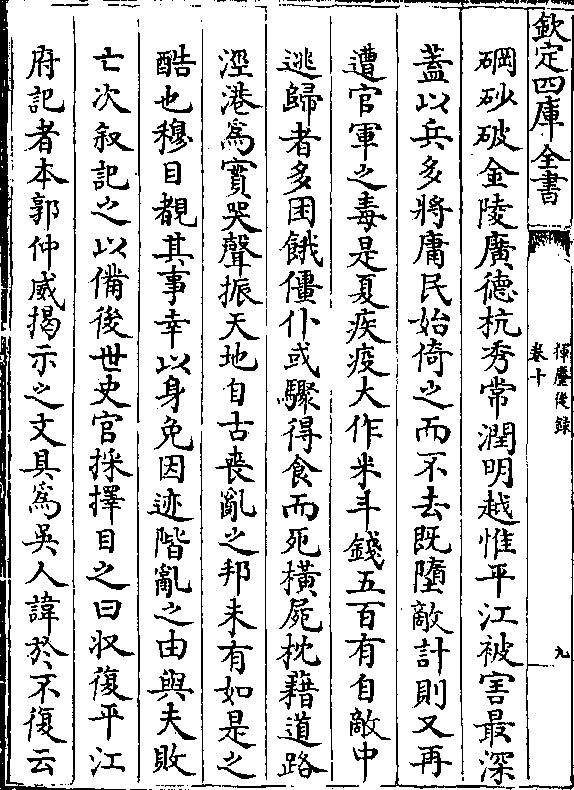 欽定四庫全書
揮麈後錄
卷十
九
碙砂破金陵廣德杭秀常潤明越惟平江被害最深
蓋以兵多將庸民始倚之而不去既墮敵計則又再
遭官軍之毒是夏疾疫大作米斗錢五百有自敵中
逃歸者多困餓僵仆或驟得食而死横屍枕藉道路
涇港為實哭聲振天地自古喪亂之邦未有如是之
酷也穆目覩其事幸以身免因迹階亂之由與夫敗
亡次叙記之以備後世史官採擇目之曰収復平江
府記者本郭仲威揭示之文具為吳人諱於不復云